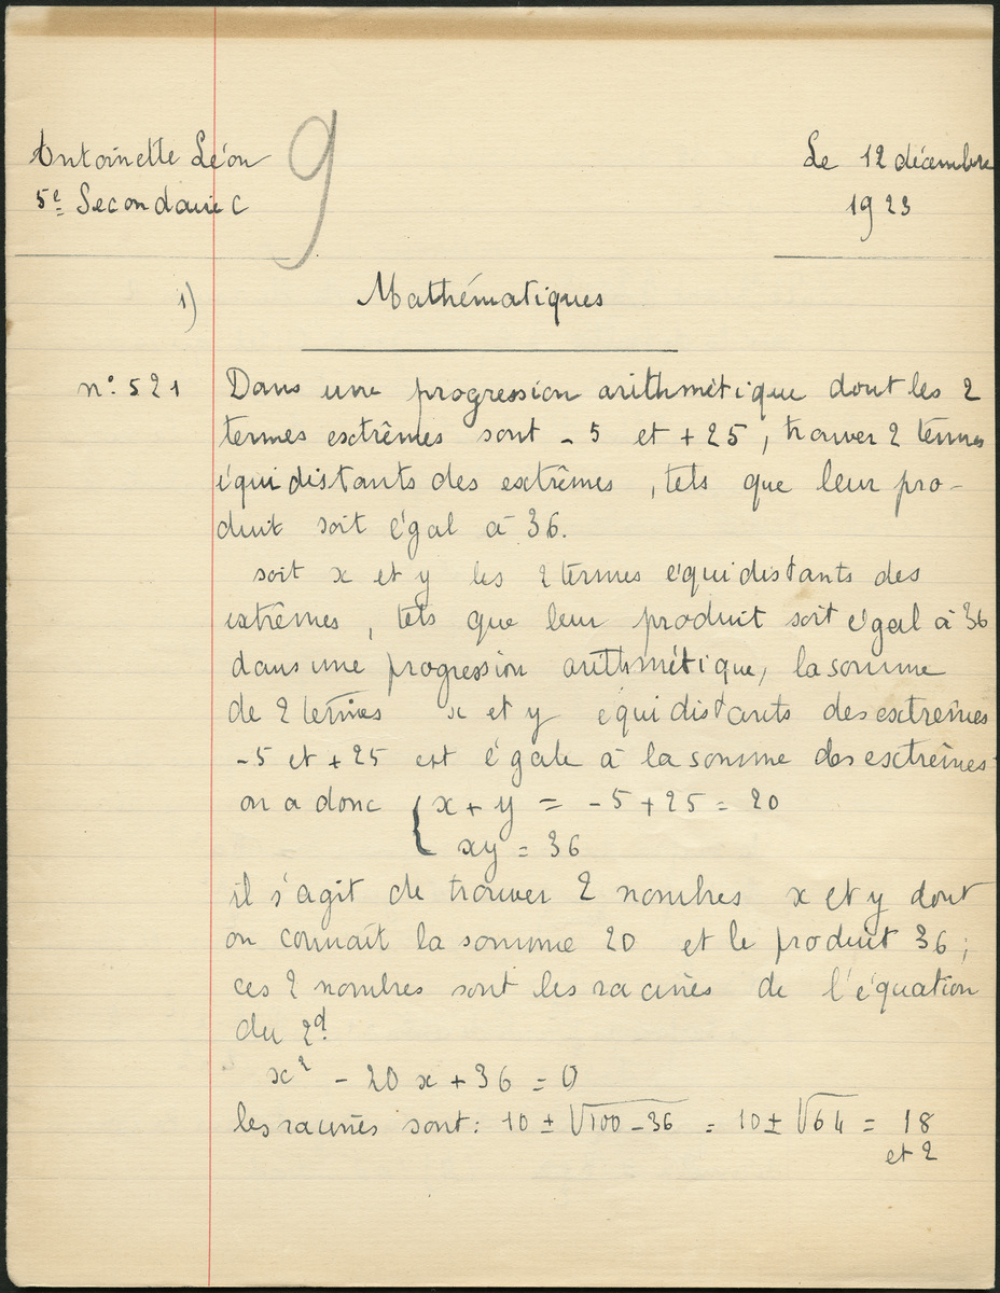 Antoinette Léon
9
Le 12 décembre
5e Secondaire C
1923
1)
Mathématiques
n° 521
Dans une progression arithmétique dont les 2
termes extrêmes sont -5 et +25, trouver 2 termes
équidistants des extrêmes, tels que leur pro-
duit soit égal à 36.
soit x et y les 2 termes équidistants des
extrêmes, tels que leur produit soit égal à 36
dans une progression arithmétique, la somme
de 2 termes x et y équidistants des extrêmes
-5 et +25 est égale à la somme des extrêmes
on a donc { x + y = -5 + 25 = 20
xy = 36
il s'agit de trouver 2 nombres x et y dont
on connaît la somme 20 et le produit 36;
ces 2 nombres sont les racines de l'équation
du 2d
x² - 20x + 36 = 0
les racines sont: 10 ± √100 - 36 = 10 ± √64 = 18
et 2